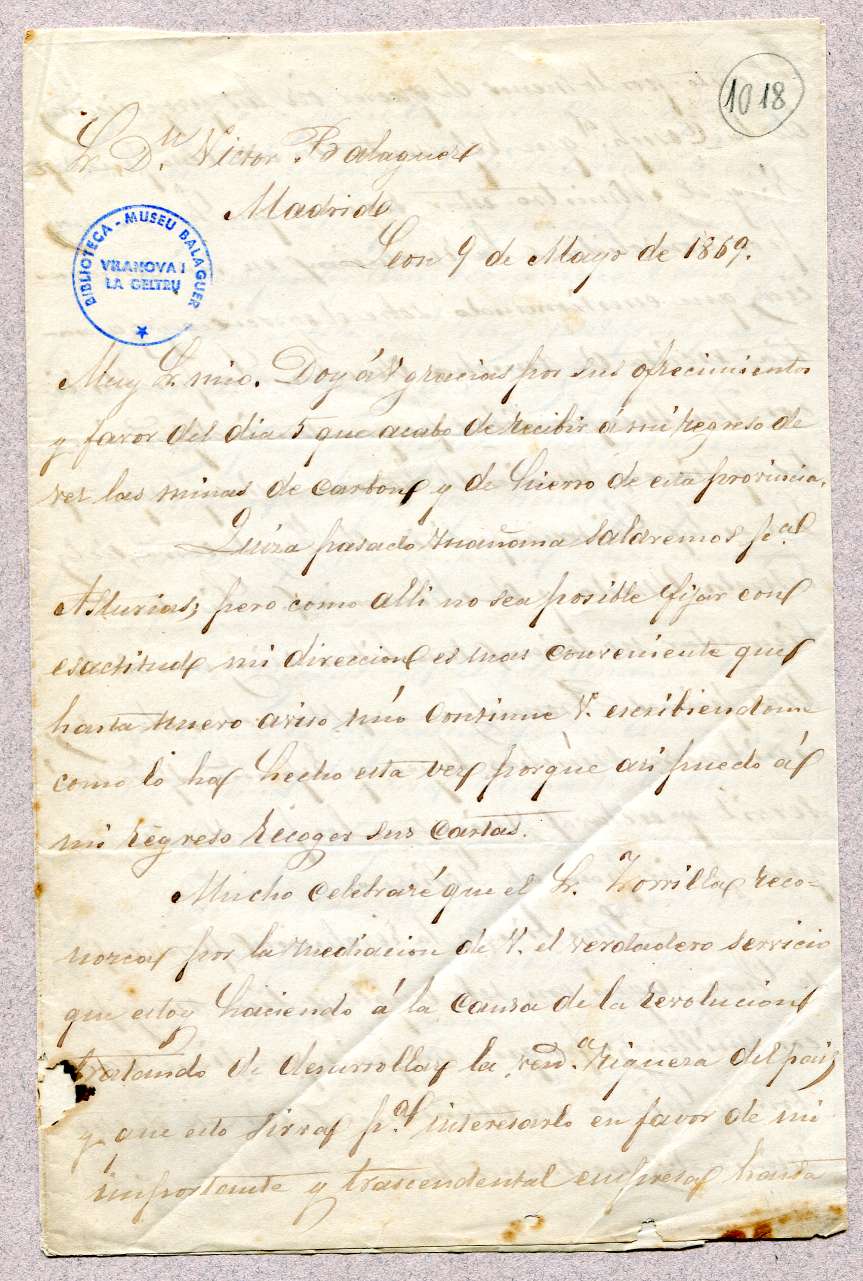 1018
Sr. Dn. Victor Balaguer
Madrid
BIBLIOTECA - MUSEU BALAGUER
VILANOVA I
LA GELTRU
Leon 9 de Mayo de 1869.
Muy Sr. mio. Doy á V gracias por sus ofrecimientos
y favor del dia 5 que acabo de recibir á mi regreso de
ver las minas de carbon y de hierro de esta provincia.
Quiza pasado mañana saldremos pa.
Asturias, pero como alli no sea posible fijar con
esactitud mi direccion es mas conveniente que
hasta nuevo aviso mío continue V. escribiendome
como lo ha hecho esta vez porque asi puedo á
mi regreso recoger sus cartas.
Mucho celebraré que el Sr. Zorrilla reco-
nozca por la mediacion de V. el verdadero servicio
que estoy haciendo á la causa de la revolucion
tratando de desarrollar la verda. riqueza del pais
y que esto sirva pa. interesarlo en favor de mi
importante y trascendental empresa hasta